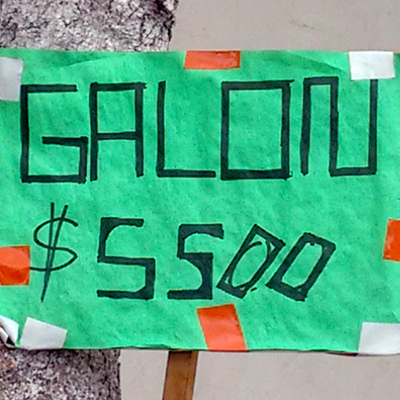 GALON
$ 5500